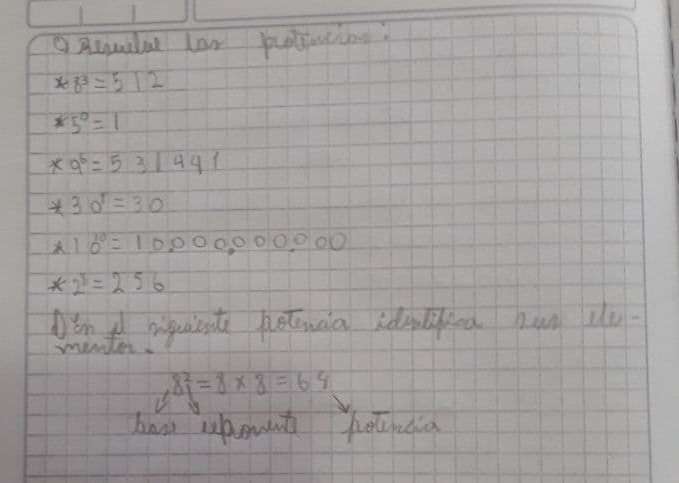 Resuelve las potencias:
* 8³ = 512
* 5⁰ = 1
* 9⁶ = 531441
* 30¹ = 30
* 10¹⁰ = 10,000,000,000
* 2⁸ = 256
En el siguiente potencia identifica sus ele-
mentos.
8² = 8 × 8 = 64
base exponente potencia